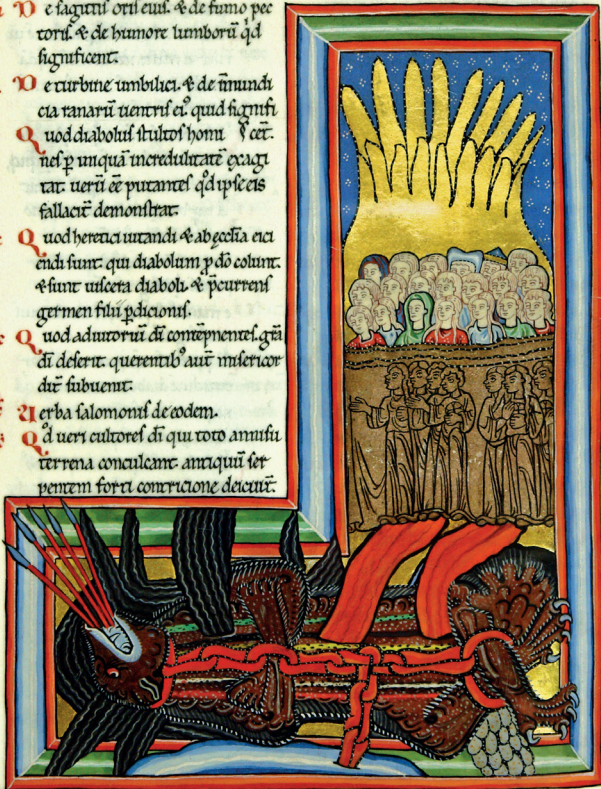 De sagittis oris eius. & de fumo pec
toris. & de humore lumborū qd
significent.
De turbine umbilici. & de īmundi
cia ranarū uentris ei⁹ quid signifi
Quod diabolus stultos homi cet.
nes ꝑ iniquā incredulitatē exagi
tat. uerū eē putantes qd ipse eis
fallacit̄ demonstrat.
Quod heretici uitandi & ab ęccl̄ia eici
endi sunt. qui diabolum ꝓ dō colunt.
& sunt uiscera diaboli. & p̄currens
germen filii ꝑdicionis.
Quod adiutoriū dī contēpnentes. gr̄a
dī deserit. querentib⁹ aut̄ misericor
dit̄ subuenit.
Verba salomonis de eodem.
Qd ueri cultores dī qui toto annisu
terrena conculcant. antiquū ser
pentem forti contricione deiciūt.